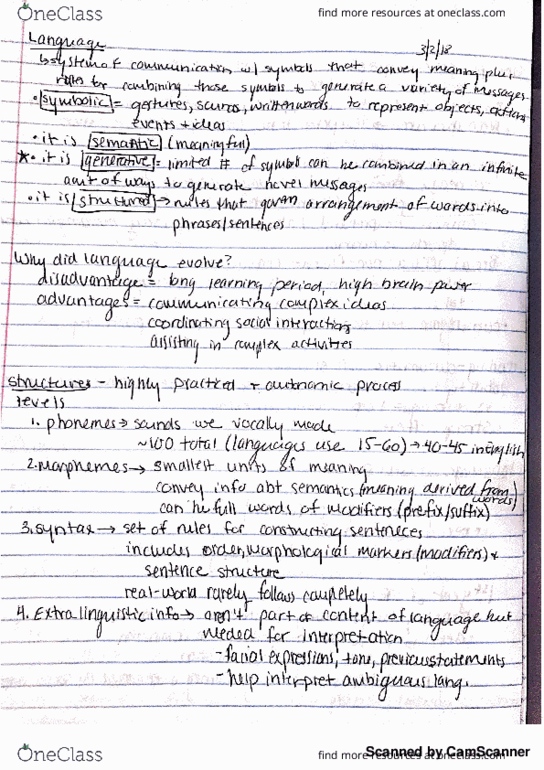 OneClass find more resources at oneclass.com
3/2/18
Language
↳ system of communication w/ symbols that convey meaning plus
rules for combining those symbols to generate a variety of messages
• symbolic = gestures, sounds, written words to represent objects, actions
events + ideas
• it is semantic (meaningful)
★• it is generative = limited # of symbols can be combined in an infinite
amt of ways to generate novel messages
• it is structured → rules that govern arrangement of words into
phrases/sentences
Why did language evolve?
disadvantage = long learning period, high brain power
advantages = communicating complex ideas
coordinating social interactions
assisting in complex activities
structures - highly practical + automonic process
levels
1. phonemes → sounds we vocally made
~100 total (languages use 15-60) → 40-45 in english
2. morphemes → smallest units of meaning
convey info abt semantics (meaning derived from words)
can be full words of modifiers (prefix/suffix)
3. syntax → set of rules for constructing sentences
includes order, morphological markers (modifiers) +
sentence structure
real-world rarely follows completely
4. Extralinguistic info → aren't part of content of language but
needed for interpretation
- facial expressions, tone, previous statements
- help interpret ambiguous lang.
OneClass find more resources at oneclass.com
Scanned by CamScanner